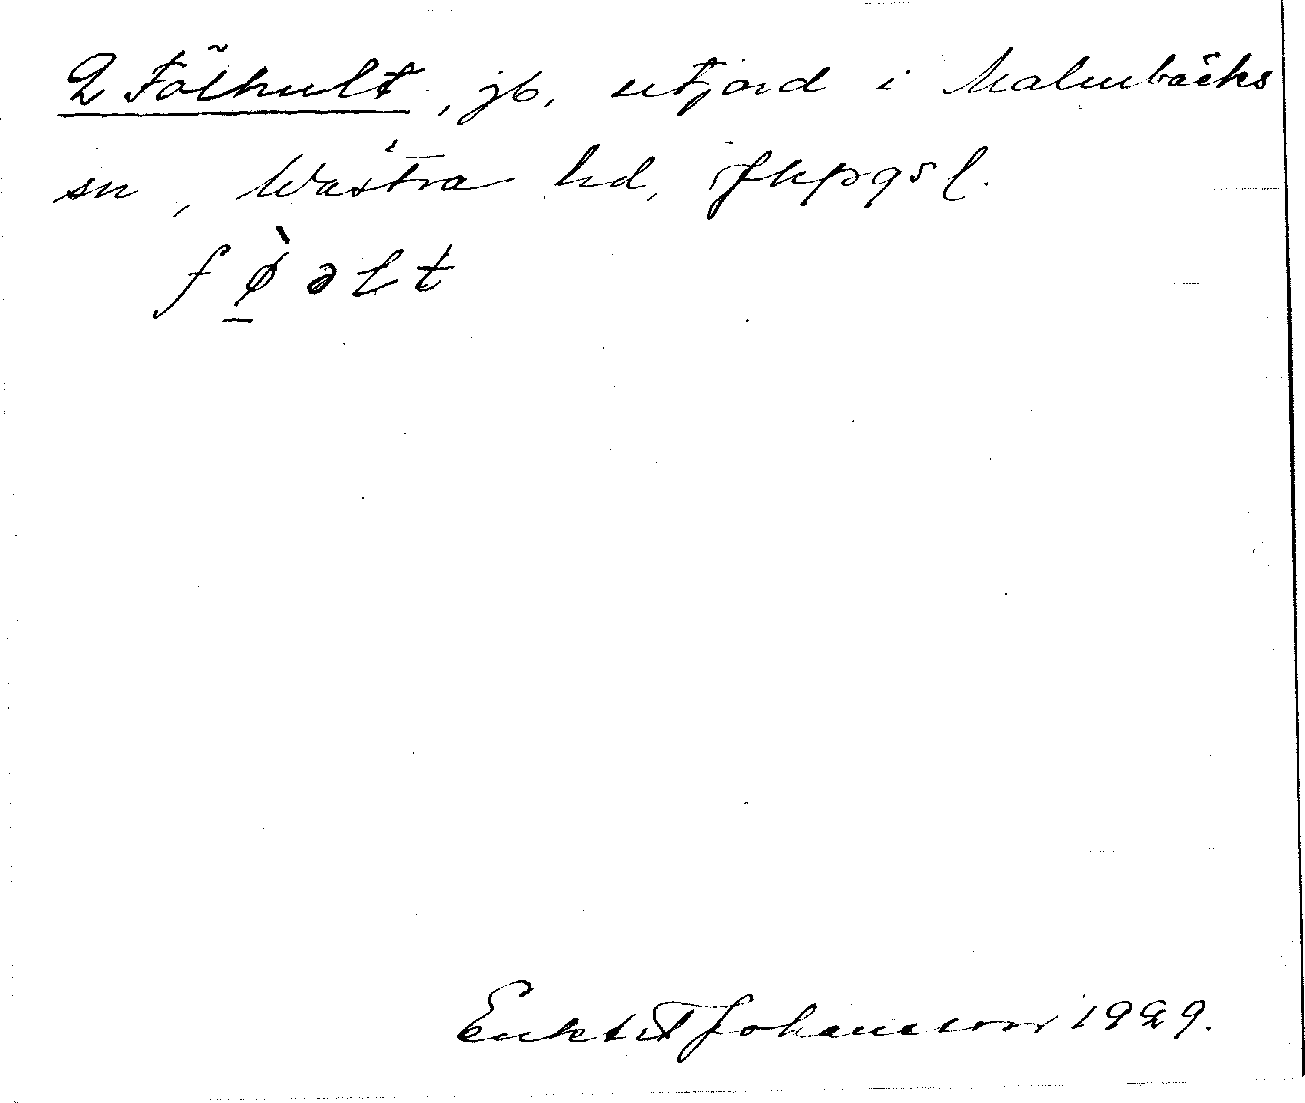 2 Fölhult, jb. utjord i Malmbäcks
sn, Wästra hd, Jkpgs l.
f ø̱̀ ə l t
Johansson 1929.